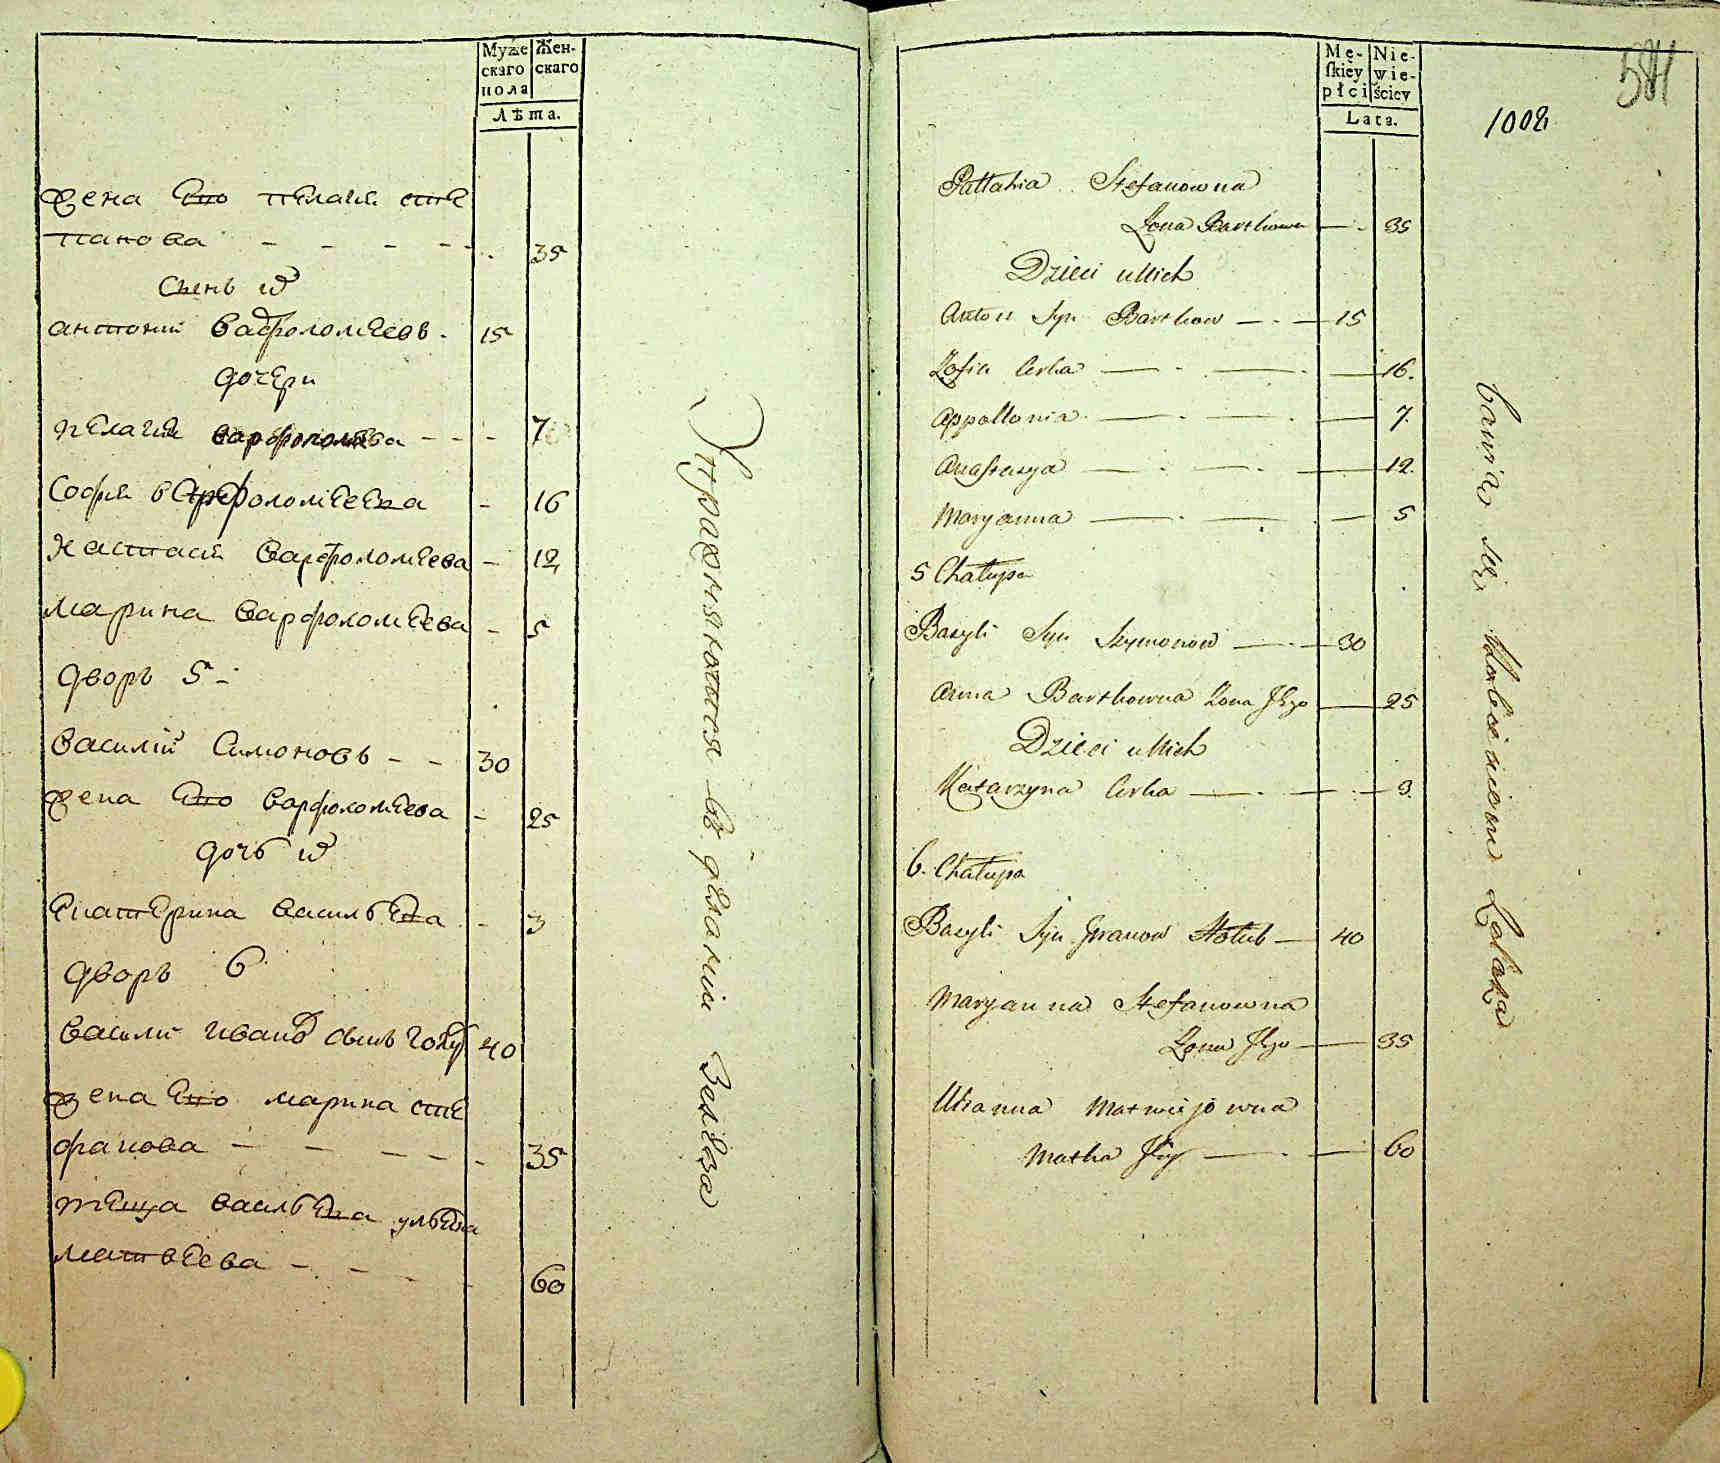 Муже
скаго
пола
Жен-
скаго
Лѣта.
жена Его пелагия сте
панова - - - - - 35
Сынъ их
антоний Варфоломѣев. 15
дочери
пелагия варфоломѣева - - - 7
София варфоломѣевна - 16
Настасия Варфоломѣева - 12
Марина Варфоломѣева - 5
дворъ 5 -
Василий Симоновъ - - 30
жена Его Варфоломѣева - 25
дочь их
Екатерина васильева - 3
дворъ 6
Василий иванов сынъ голуб 40
жена Его марина сте
фанова - - - - - 35
теща васильева ульяна
матвѣева - - - - 60
Упражняются въ дѣлании
Mę-
skiey
płci
Nie-
wie-
ściey
Lata.
584
1002
Pallahia Stefanowna
Zona Bartkowa — . 35
Dzieci u Nich
Anton Syn Bartkow — . — 15
Zofia Corka — . — . — 16.
Appollonia — . — . — 7.
Anastasya — . — . — 12
Maryanna — . — . — 5
5 Chałupa
Bazyli Syn Szymonow — . — 30
Anna Bartkowna Zona Jego — 25
Dzieci u Nich
Katarzyna Corka — . — . — 3
6. Chałupa
Bazyli Syn Iwanow Hołub — 40
Maryanna Stefanowna
Zona Jego — 35
Ulianna Matwiejowna
Matka Jego — . — 60
bawią się